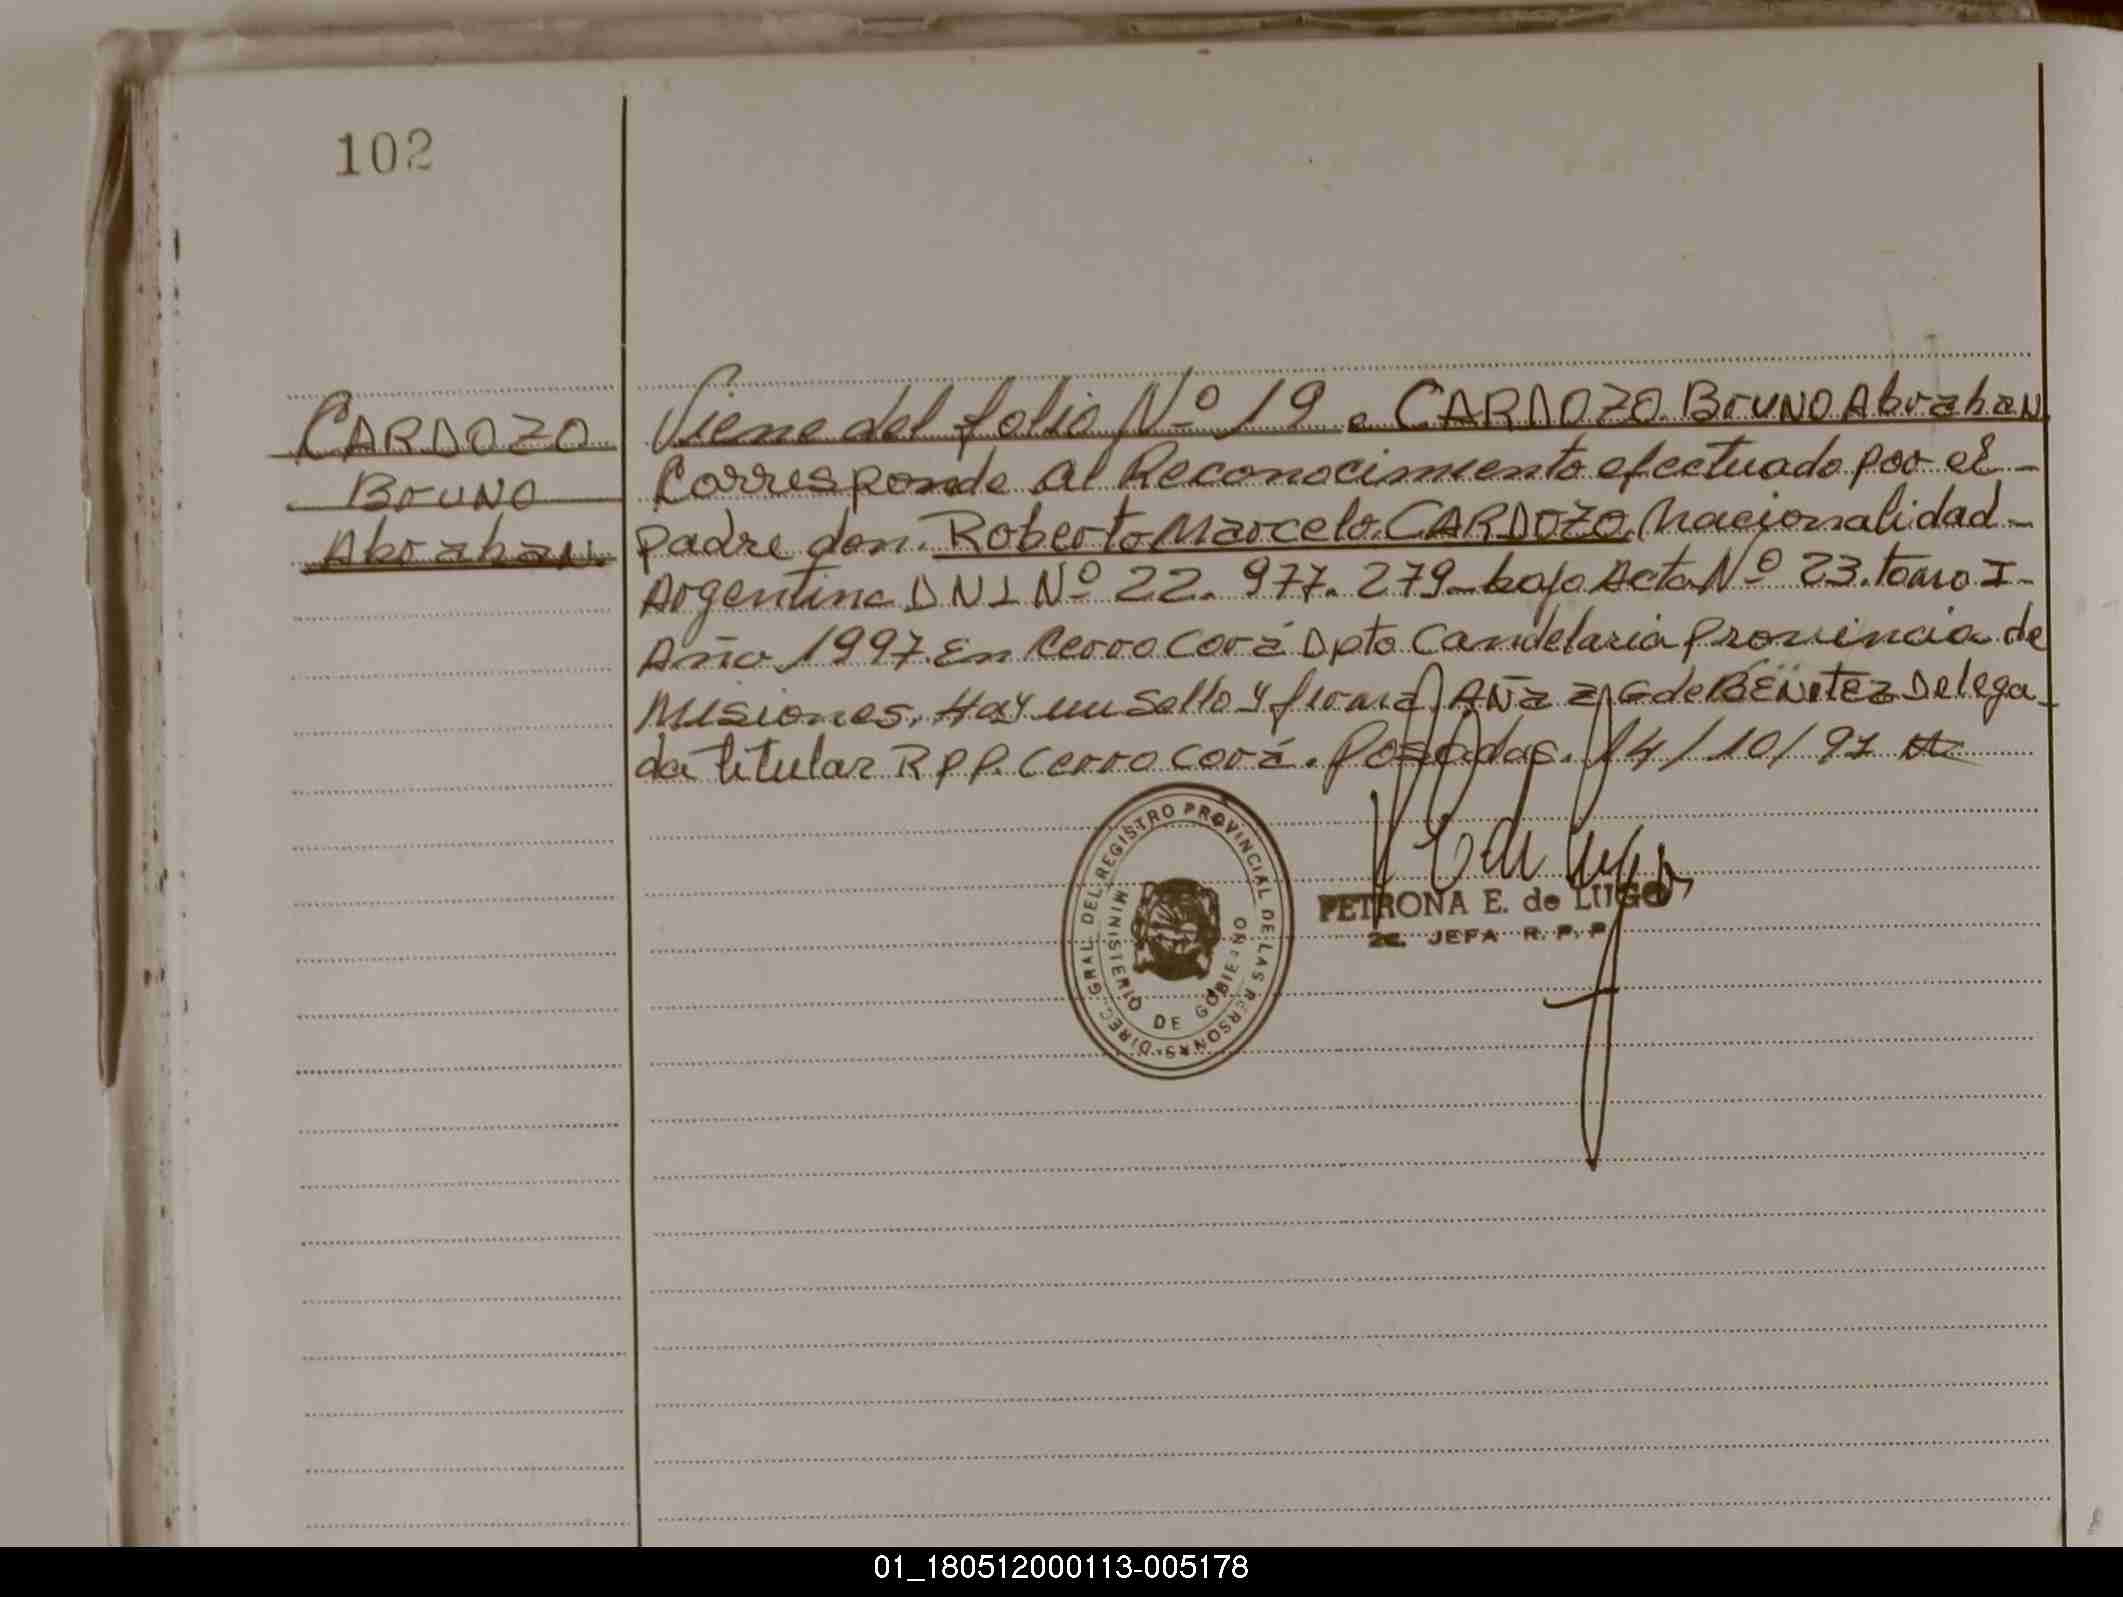 102
CARDOZO
Bruno
Abrahan.
Viene del folio Nº 19 a CARDOZO Bruno Abrahan
Corresponde al Reconocimiento efectuado por el -
padre don. Roberto Marcelo CARDOZO Nacionalidad -
Argentina DNI Nº 22.977.279 - bajo Acta Nº 23. tomo I -
Año 1997. En Cerro Corá Dpto Candelaria provincia de
Misiones. Hay un sello y firma G de BENITEZ Delega-
da titular R P P. Cerro Corá. Posadas. 14/10/97
DIREC. GRAL DEL REGISTRO PROVINCIAL DE LAS PERSONAS
MINISTERIO DE GOBIERNO
PETRONA E. de LUGO
2a. JEFA R. P. P.
01_180512000113-005178